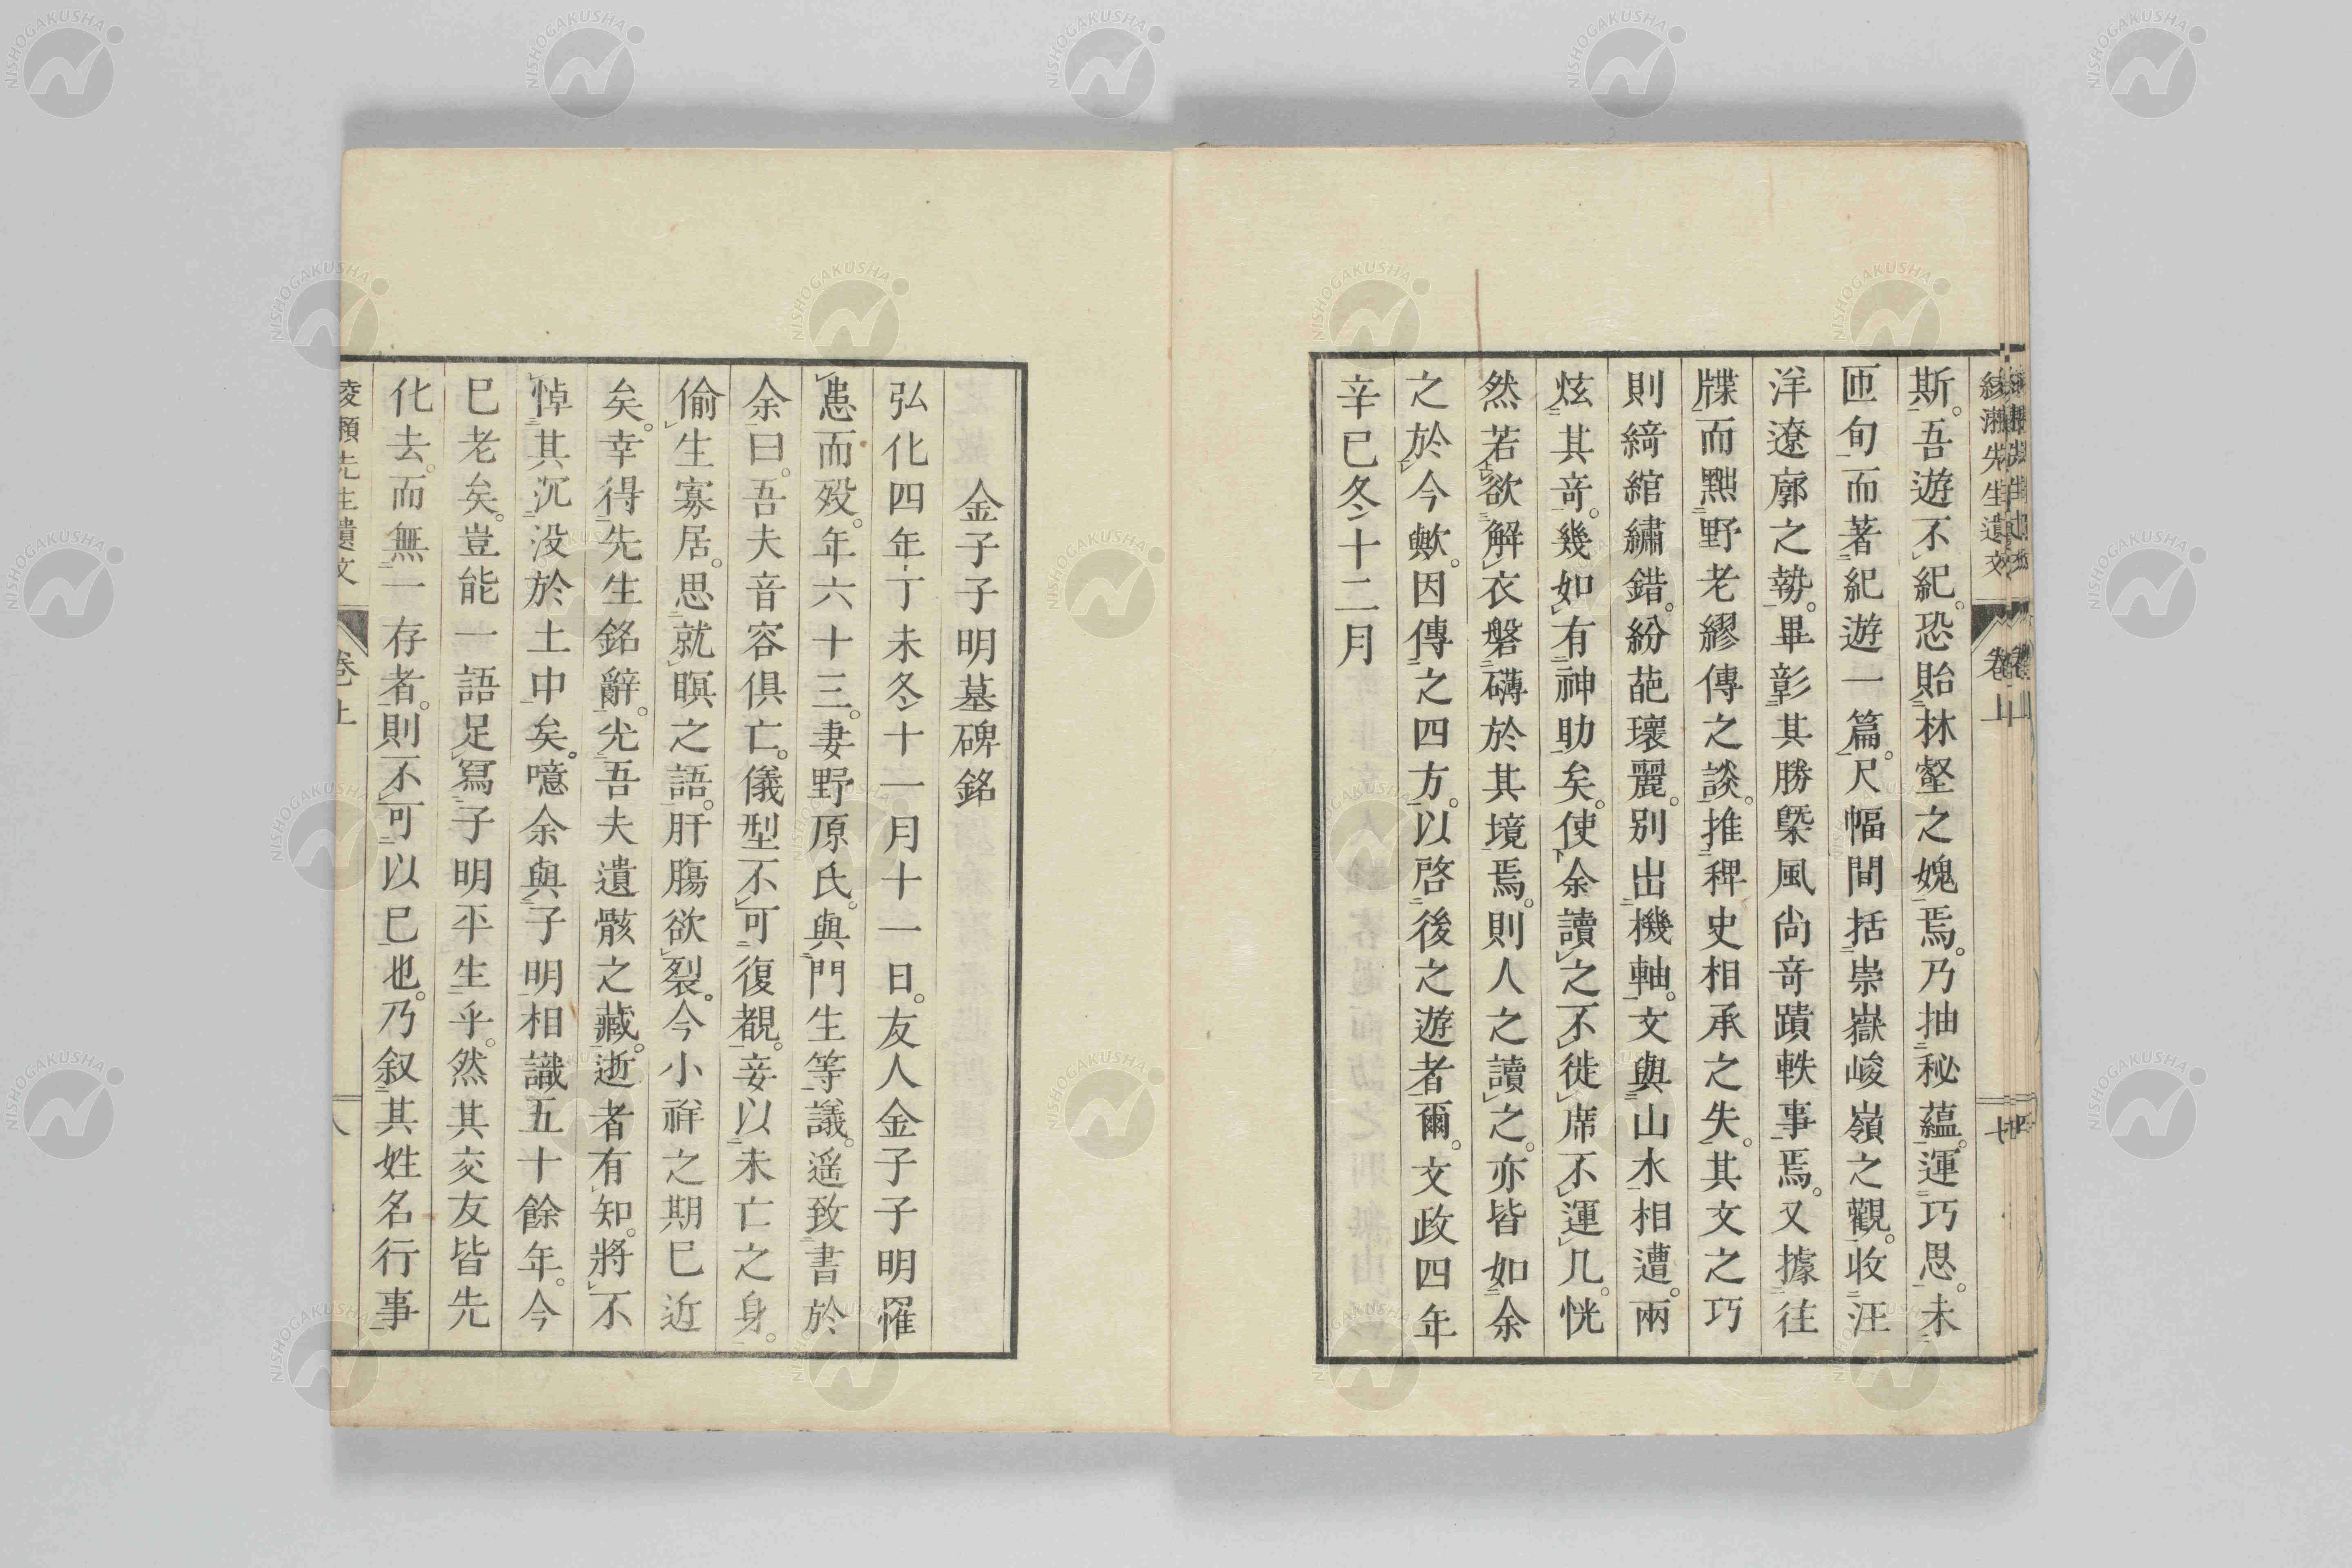 綾瀬先生遺文 卷上 七
斯。吾遊不紀。恐貽林壑之媿焉。乃抽秘蘊。運巧思。未
匝旬而著紀遊一篇。尺幅間括崇嶽峻嶺之觀。收汪
洋遼廓之勢。畢彰其勝槩風尚竒蹟軼事焉。又據往
牒而黜野老繆傳之談。推稗史相承之失。其文之巧
則綺綰繡錯。紛葩瓌麗。別出機軸。文與山水相遭。兩
炫其竒。幾如有神助矣。使余讀之不徙席不運几。恍
然若欲解衣磐礴於其境焉。則人之讀之。亦皆如余
之於今歟。因傳之四方。以啓後之遊者爾。文政四年
辛巳冬十二月
金子子明墓碑銘
弘化四年丁未冬十一月十一日。友人金子子明罹
患而殁。年六十三。妻野原氏。與門生等議。遥致書於
余曰。吾夫音容俱亡。儀型不可復覩。妾以未亡之身。
偷生寡居。思就瞑之語。肝膓欲裂。今小祥之期巳近
矣。幸得先生銘辭。光吾夫遺骸之藏。逝者有知。將不
悼其沉没於土中矣。噫余與子明相識五十餘年。今
巳老矣。豈能一語足寫子明平生乎。然其交友皆先
化去。而無一存者。則不可以巳也。乃叙其姓名行事
綾瀬先生遺文 卷上 八
NISHOGAKUSHA